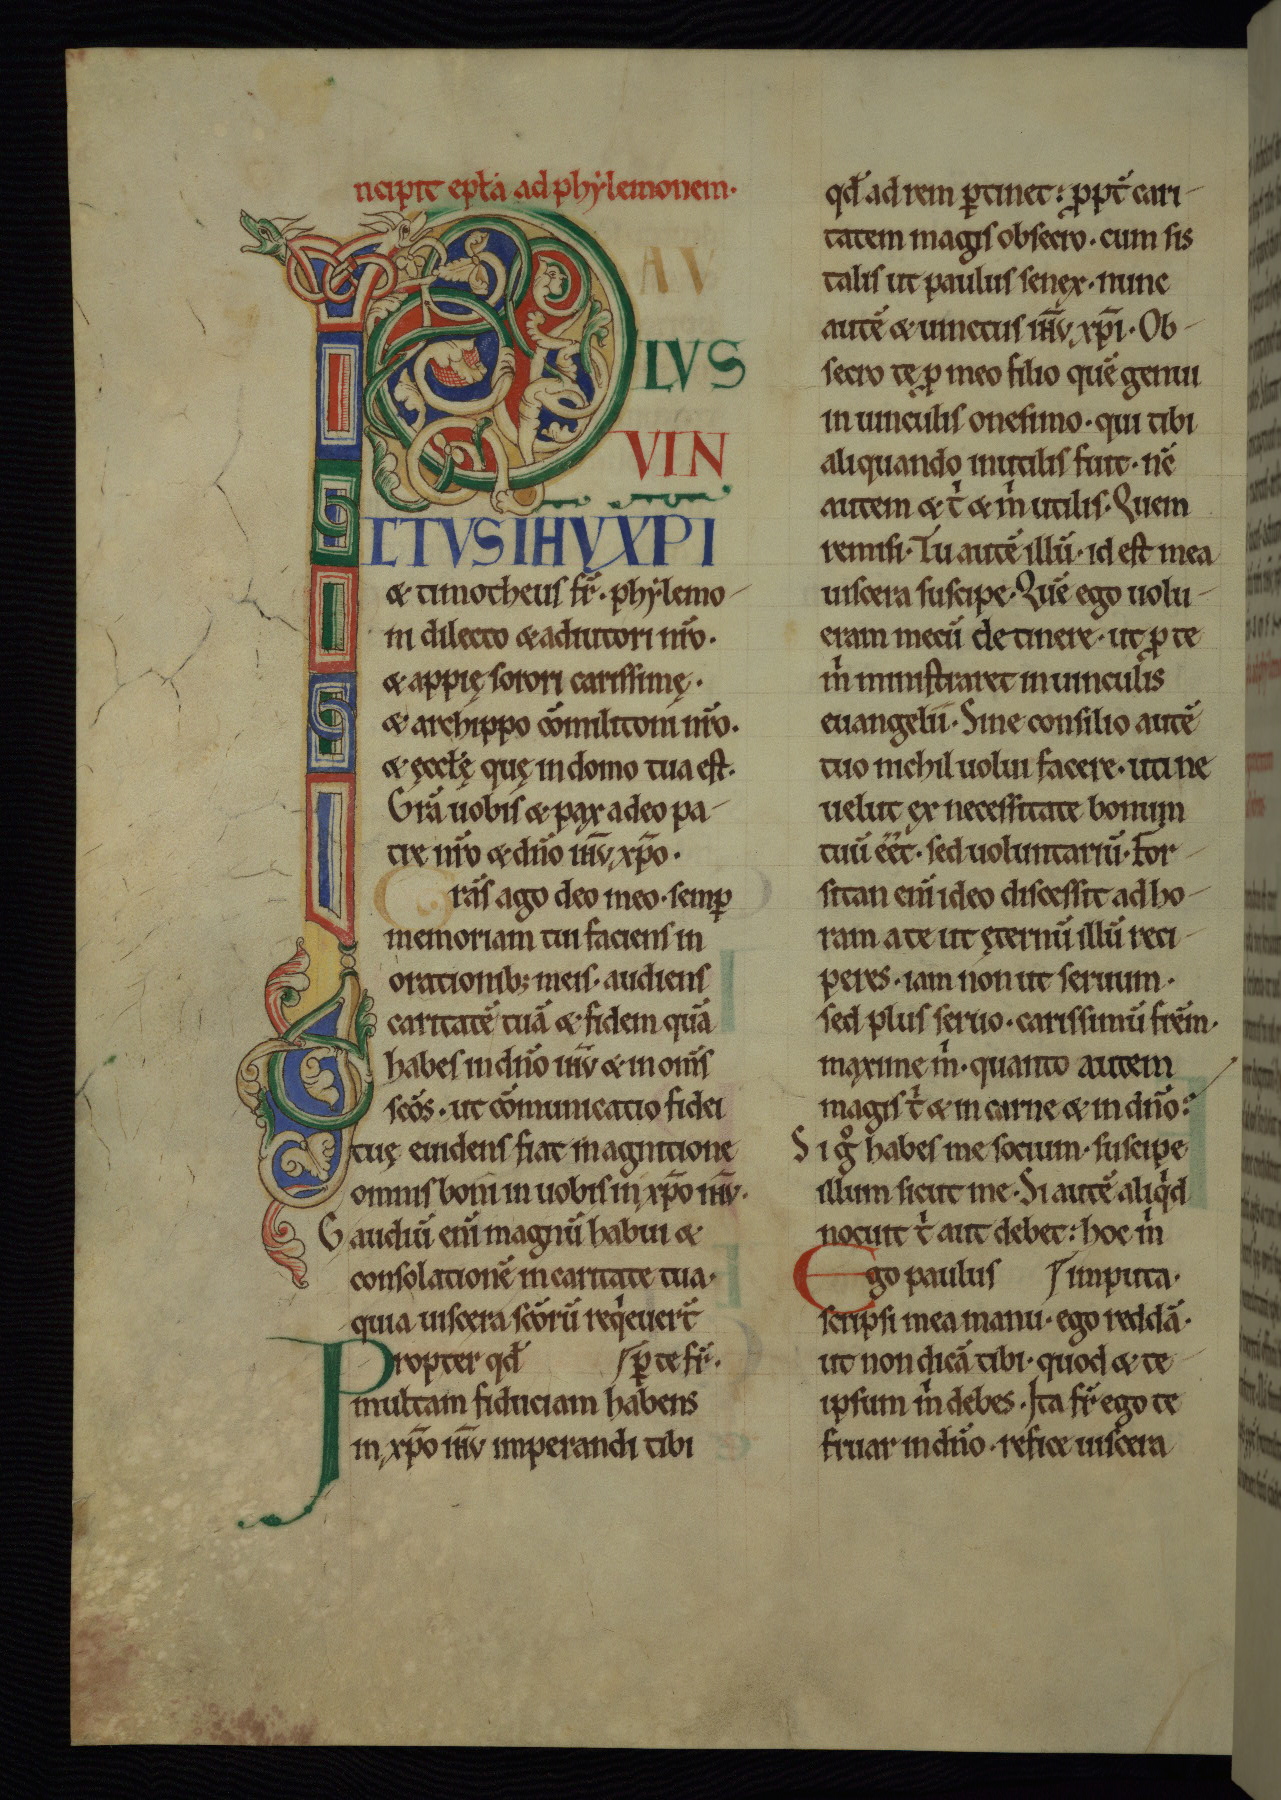 ncipit epła ad phẏlemonem·
P AV
LVS
VIN
CTVS IHV XPI
& timotheus fr̄· phẏlemo-
ni dilecto & adiutori nr̄o·
& appię sorori carissimę·
& archippo cōmilitoni nr̄o·
& ęcclę quę in domo tua est·
Grā uobis & pax a deo pa-
tre nr̄o & dn̄o ih̄v xp̄o·
Grās ago deo meo· semꝑ
memoriam tui faciens in
orationib; meis· audiens
caritatē tuā & fidem quā
habes in dn̄o ih̄v & in om̄s
sc̄os· ut cōmunicatio fidei
tuę euidens fiat in agnitione
omnis boni in uobis in xp̄o ih̄v·
Gaudiū eni̅ magnū habui &
consolationē in caritate tua·
quia uiscera sc̄orū reqͥeuer̄t
Propter qd̄ ꝑ te fr̄·
multam fiduciam habens
in xp̄o ih̄v imperandi tibi
qd̄ ad rem ꝑtinet: ꝓpt̄ cari-
tatem magis obsecro· cum sis
talis ut paulus senex· nunc
autē & uinctus ih̄v xp̄i· Ob-
secro te ꝓ meo filio quē genui
in uinculis onesimo· qui tibi
aliquando inutilis fuit· nc̄
autem & tͥ & mͥ utilis· Quem
remisi· Tu autē illū· id est mea
uiscera suscipe· Quē ego uolu-
eram mecū detinere· ut ꝓ te
mͥ ministraret in uinculis
euangelii· Sine consilio autē
tuo nichil uolui facere· uti ne
uelut ex necessitate bonum
tuū ēēt· sed uoluntariū· For-
sitan eni̅ ideo discessit ad ho-
ram a te ut ęternū illū reci-
peres· iam non ut seruum·
sed plus seruo· carissimū frēm·
maxime mͥ· quanto autem
magis tͥ & in carne & in dn̄o:
Si gͦ habes me socium· suscipe
illum sicut me· Si autē aliqͥd
nocuit tͥ aut debet: hoc mͥ
Ego paulus imputa·
scripsi mea manu· ego reddā·
ut non dicā tibi· quod & te
ipsum mͥ debes· Ita fr̄ ego te
fruar in dn̄o· refice uiscera